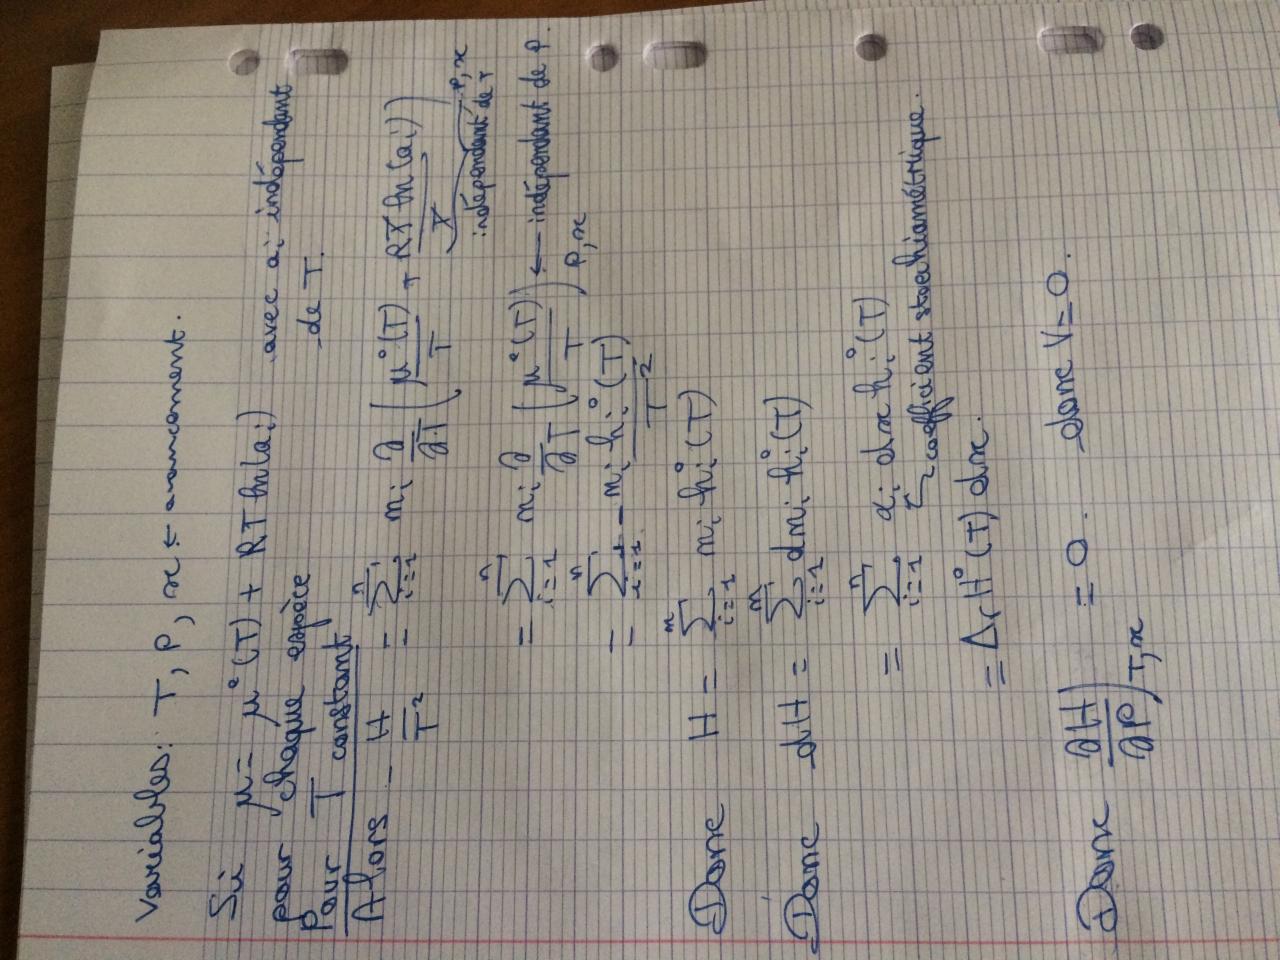 Variables: T, P, x ← avancement.
Si μ = μ°(T) + RT ln(ai) avec ai indépendant
pour chaque espèce de T.
Pour T constant
Alors - H/T² = Σ_{i=1}^{n} ni ∂/∂T (μ°(T)/T + RT ln(ai)/T)_{P,x}
indépendant de T
= Σ_{i=1}^{n} ni ∂/∂T (μ°(T)/T)_{P,x} ← indépendant de P.
= Σ_{i=1}^{n} - ni hi°(T)/T²
Donc H = Σ_{i=1}^{n} ni hi°(T)
Donc dH = Σ_{i=1}^{n} dni hi°(T)
= Σ_{i=1}^{n} αi dx hi°(T)
coefficient stoechiométrique.
= ΔrH°(T) dx.
Donc ∂H/∂P)_{T,x} = 0. donc V = 0.